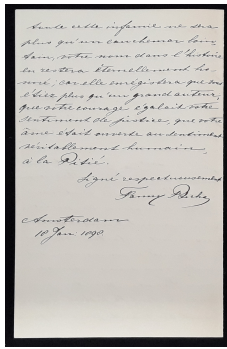 toute cette infamie ne sera
plus qu'un cauchemar loin-
tain, votre nom dans l'histoire
en restera éternellement ho-
noré; car elle enrégistrera que vous
étiez plus qu'un grand auteur,
que votre courage égalait votre
sentiment de justice, que votre
âme était ouverte au sentiment
véritablement humain,
à la Pitié.
Signé respectueusement
Fanny
Amsterdam
18 Jan 1898